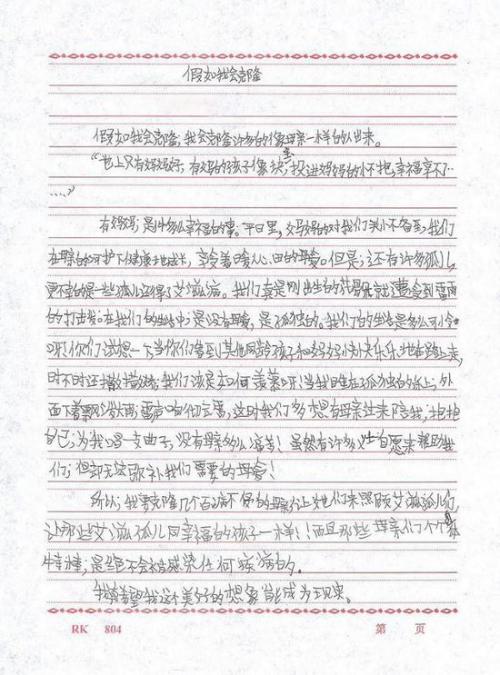 假如我会克隆
假如我会克隆,我会克隆许多的像母亲一样的人出来。
“世上只有妈妈好,有妈的孩子像块宝,投进妈妈的怀抱,幸福享不了
……”
有妈妈,是多么幸福的事。平日里,妈妈的对我们关心不备至,我们
在母亲的呵护下健康地成长,享受着暖人心田的母爱。但是,还有许多孤儿,
更不幸的是一些孤儿还得了艾滋病。他们真是刚出生的花骨朵就遭受到雷雨
的打击。在我们的生活中,是没有母爱,是孤独的。我们的生活是多么可怜
呀!你们试想一下当你们看到其他同龄孩子和妈妈快快乐乐地在路上走,
时不时还撒撒娇,我们该是如何羡慕呀!当我自己在孤独的纸上,外
面下着雨,雷声响彻云霄,这时我们多想有母亲过来陪我,抱抱
自己,为我唱一支曲子,没有母亲多么痛苦!虽然有许多人自愿来帮助我
们,但却无法弥补我们需要的母爱!
所以,我要克隆几千百个的母亲让她们来照顾艾滋孤儿们,
让那些艾滋孤儿同幸福的孩子一样!而且那些母亲们个个身体
棒棒,是绝不会被感染任何疾病的。
我希望我这个美好的想象能成为现实。
RK 804 第 页